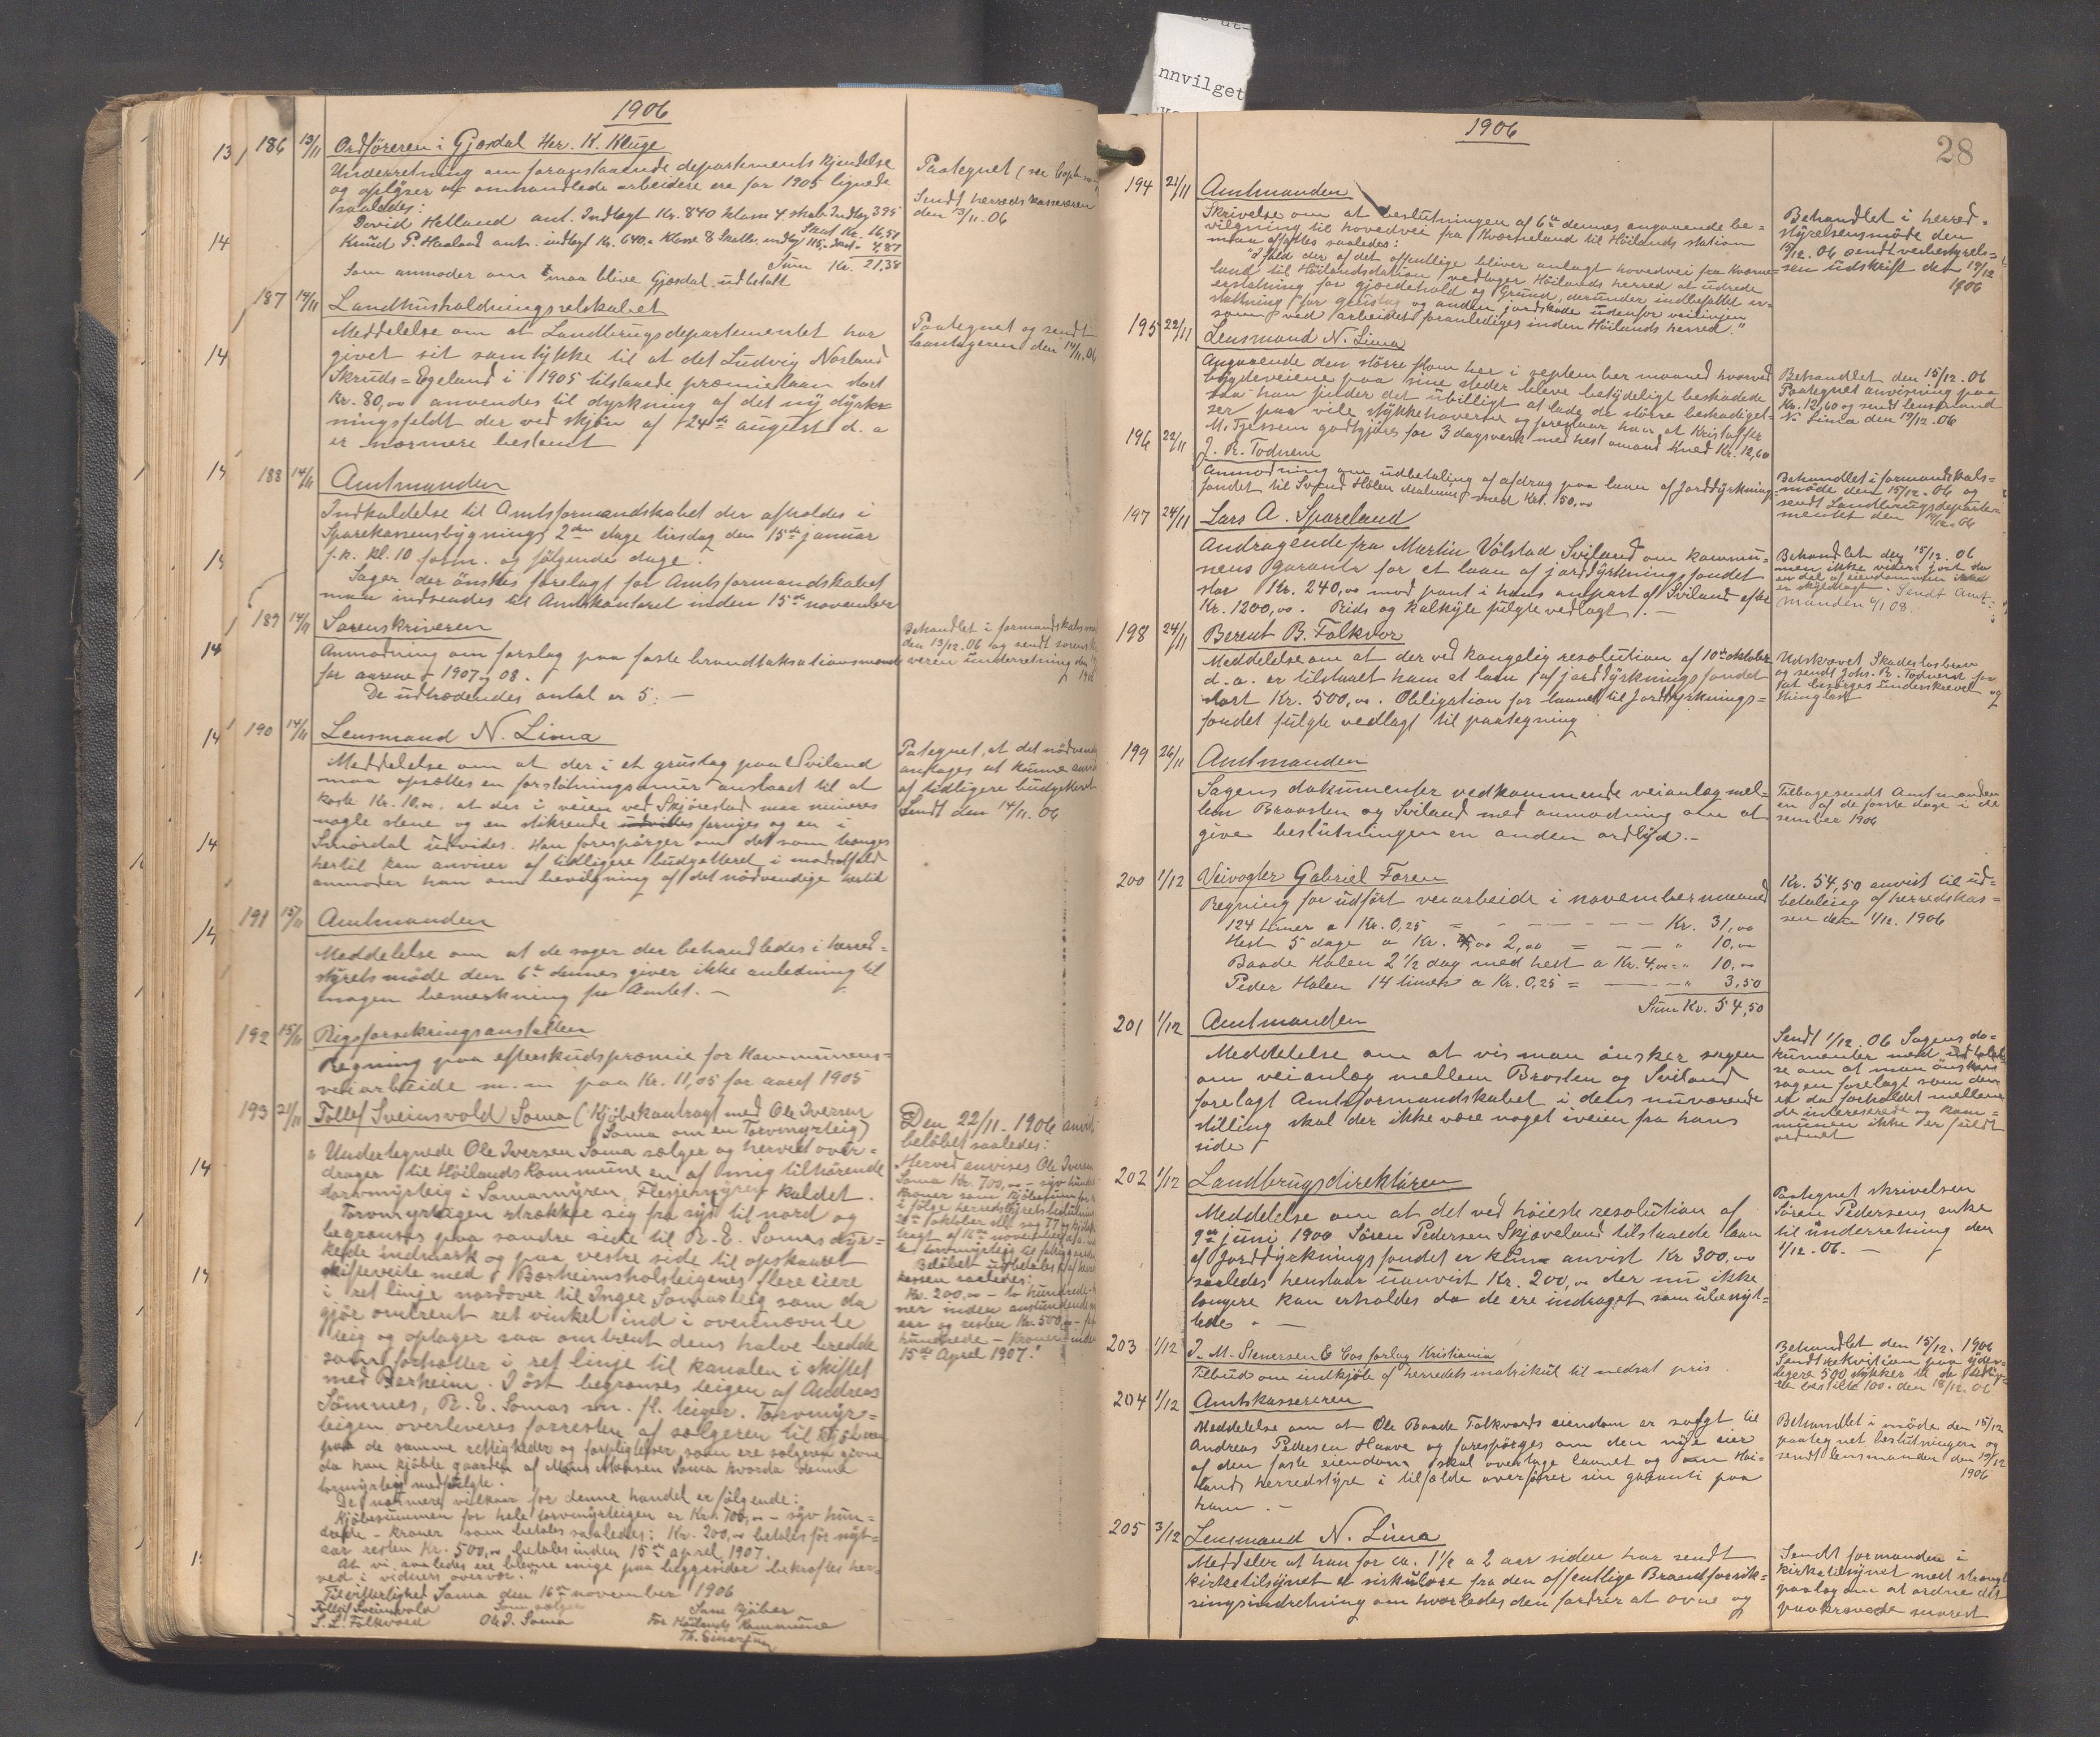 nnvilget
1906
186 13/11 Ordföreren i Gjesdal Her. K. Kluge
Underretning om foranstaaende departements kjendelse
og oplyser at omhandlede arbeidere ere for 1905 lignede
saaledes:
David Helland ant. Indtægt Kr. 840 klasse 4 skatb. Indtæg 395
Skat Kr. 16,51
Knud P. Haaland ant. indtægt Kr. 640. Klasse 8 Skatb. indtæg 115. Skat 4,87
Sum Kr. 21,38
Som anmoder om maa blive Gjesdal udbetalt
Paategnet
Sendt herredskassereren
den 13/11. 06
187 14/11 Landhusholdningsselskabet
Meddelelse om at Landbrugsdepartementet har
givet sit samtykke til at det Ludvig Norland
Skruds=Egeland i 1905 tilstaaede præmielaan stort
Kr. 80,00 anvendes til dyrkning af det ny dyrk=
ningsfeldt der ved skjön af 24de august d. a
er nærmere bestemt
Paategnet og sendt
laantageren den 14/11. 06
188 14/11 Amtmanden
Indkaldelse til Amtsformandskabet der afholdes i
Sparekassensbygning 2den etage tirsdag den 15de januar
f. a. kl. 10 form. og fölgende dage.
Sager der önskes forelagt for Amtsformandskabet
maa indsendes til Amtskontoret inden 15de november
189 14/11 Sorenskriveren
Anmodning om forslag paa faste brandtaksationsmænd
for aarene 1907 og 08.
De udtrædendes antal er 5. —
Behandlet i formandskabsmö
den 13/12. 06 og sendt sorenskri
veren underretning den
190 14/11 Lensmand N. Lima
Meddelelse om at der i et grustag paa Sviland
maa opsættes en forstötningsmur anslaaet til at
koste Kr. 10,00. at der i veien ved Skjörestad maa mineres
nogle stene og en stikrende udvides foruges og en i
Smördal udvides. Han forespörger om det som trænges
hertil kan anvises af tidligere budgetteret i modsatfald
anmoder han om bevilgning af det nödvendige hertil
Pategnet, at det nödvend
antages at kunne anvis
af tidligere budgetteret
Sendt den 14/11. 06
191 15/11 Amtmanden
Meddelelse om at de sager der behandledes i herred=
styrets möde den 6te dennes giver ikke anledning til
nogen bemærkning fra Amtet. —
192 15/11 Rigsforsikringsanstalten
Regning paa efterskudspræmie for Kommunens
veiarbeide m. m paa Kr. 11,05 for aaret 1905
193 21/11 Tollef Sveinsvold Soma (Kjöbekontragt med Ole Iversen
Soma om en Torvmyrteig)
" Undertegnede Ole Iversen Soma sælger og herved over=
drager til Höilands Kommune en af mig tilhörende
torvmyrteig i Somamyren, Flesjemyren kaldet.
Torvmyrteigen strækker sig fra syd til nord og
begrænses paa söndre side til R. E. Somas dyr=
kede indmark og paa vestre side til opskaaret
skifteveite med Bærheimsholsteigenes flere eiere
i ret linje nordover til Inger Somas teig som da
gjör omtrent ret vinkel ind i ovennævnte
teig og optager saa omtrent dens halve bredde
som forhotter i ret linje til kanalen i skiftet
med Bærheim. I öst begrænses teigen af Andreas
Sömmes, R. E. Somas m. fl. teiger. Torvmyr=
teigen overleveres forresten af sælgeren til kjöberen
paa de samme rettigheder og forpligtelser som ere sælgeren givne
da han kjöbte gaarden af Mons Monsen Soma hvorda denne
tormyrteig medfulgte.
De nærmere vilkaar for denne handel er fölgende:
Kjöbesummen for hele torvmyrteigen er Kr. 700,00 — syv hun=
drede — kroner som betales saaledes: Kr. 200,00 betales för nyt=
aar resten Kr. 500,00 betales inden 15de april 1907.
At vi saaledes ere blevne enige paa beggesider bekræftes her=
ved i vidners overvær."
Tilvitterlighed Soma den 16de november 1906
Tollef Sveinsvold Som sælger Som kjöber
L. L. Folkvord Ole I. Soma For Höilands Kommune
Th. Einarsen
Den 22/11. 1906 anvist
belöbet saaledes:
Herved anvises Ole Iversen
Soma Kr. 700,00 — syv hundre
kroner som kjöbesum for
i fölge herredsstyrets beslutning
oktober
tragt af 16de november
torvmyrteig
Belöbet udbetales af herred
kassen saaledes:
Kr. 200,00 — to hundrede
ner inden anstundende
aar og resten Kr. 500,00
hundrede — kroner inden
15de April 1907."
1906
28
194 21/11 Amtmanden
Skrivelse om at beslutningen af 6te dennes angaaende be=
vilgning til hovedvei fra Kværneland til Höilands station
maa affattes saaledes:
"I fald der af det offentlige bliver anlagt hovedvei fra Kværne=
land til Höilandsstation vedtager Höilands herred at udrede
erstatning for gjærdehold og Grund, derunder indbefattet er=
statning for grustag og anden jordskade udenfor veilinjen
som ved arbeidet foranlediges inden Höilands herred."
Behandlet i herred=
styrelsensmöde den
15/12. 06 sendt veibestyrels=
sen udskrift det 19/12
1906
195 22/11 Lensmand N. Lima
Angaaende den större flom her i september maaned hvorved
bygdeveiene paa sine steder bleve betydeligt beskadede
saa han finder det ubilligt at lade de större beskadigel=
ser paa vile stykkehaverne og foreslaar han at Kristoffer
M. Tjessem godtgjöres for 3 dagsverk med hest omand med Kr. 12,60
Behandlet den 15/12. 06
Paategnet anvisning paa
Kr. 12,60 og sendt lensmand
N. Lima den 19/12. 06
196 22/11 J. R. Todnem
Anmodning om udbetaling af afdrag paa laan af Jorddyrknings=
fondet til Svend Hölen Malmim med Kr. 150,00
Behandlet i formandskabs=
möde den 15/12. 06 og
sendt Landbrugsdeparte=
mentet den 19/12. 06
197 24/11 Lars A. Spareland
Andragende fra Martin Völstad Sviland om kommu=
nens garanti for et laan af jorddyrkningsfondet
stor Kr. 240,00 mod pant i hans anpart af Sviland
Kr. 1200,00. Rids og kalkyle fulgte vedlagt. —
Behandlet den 15/12. 06
men ikke videre gjort da
en del af eiendommen ikke
er skyldlagt. Sendt Amt=
manden 4/1 08.
198 24/11 Berent B. Folkvor
Meddelelse om at der ved kongelig resolution af 10de oktober
d. a. er tilstaaet ham et laan af jorddyrkningsfondet
stort Kr. 500,00. Obligation for laanet til Jorddyrknings=
fondet fulgte vedlagt til paategning
Udskrevet Skadeslösbrev
og sendt Johs. R. Todnem for
at besörges underskrevet og
thinglæst
199 26/11 Amtmanden
Sagens dokumenter vedkommende veianlæg mel=
lem Braasten og Sviland med anmodning om at
give beslutningen en anden ordlyd. —
Tilbagesendt Amtmanden
en af de förste dage i de
sember 1906
200 1/12 Veivogter Gabriel Foren
Regning for udfört veiarbeide i november maaned
124 timer a Kr. 0,25 = — — — — Kr. 31,00
Hest 5 dage a Kr. 2,00 = — — " 10,00
Baade Hölen 2 1/2 dag med hest a Kr. 4,00 = " 10,00
Peder Hölen 14 timer a Kr. 0,25 = — — " 3,50
Sum Kr. 54,50
Kr. 54,50 anvist til ud=
betaling af herredskas=
sen den 1/12. 1906
201 1/12 Amtmanden
Meddelelse om at vis man önsker sagen
om veianlæg mellem Brosten og Sviland
forelagt Amtsformandskabet i dens nuværende
stilling skal der ikke være noget iveien fra hans
side
Sendt 1/12. 06 Sagens do=
kumenter med udtalel
se om at man önsker
sagen forelagt som den
er da forholdet mellem
de interesserede og kom=
munen ikke er fuldt
ordnet
202 1/12 Landbrugsdirektören
Meddelelse om at det ved höieste resolution af
9de juni 1900 Sören Pedersen Skjæveland tilstaaede laan
af Jorddyrkningsfondet er kun anvist Kr 300,00
saaledes henstaar uanvist Kr. 200,00 der nu ikke
længere kan erholdes da de ere indraget som ubenyt=
tede. —
Paategnet skrivelsen
Sören Pedersens enke
til underretning den
1/12. 06. —
203 1/12 J. M. Stenersen & Cos forlag Kristiania
Tilbud om indkjöb af herredets matrikul til nedsat pris
Behandlet den 15/12. 1906
Sendt rekvisition paa yder=
ligere 500 stykker til de tidlige=
re bestilte 100. den 18/12. 06
204 1/12 Amtskassereren
Meddelelse om at Ole Baade Folkvords eiendom er solgt til
Andreas Pedersen Haave og forespörges om den nye eier
af den faste eiendom skal overtage laanet og om Höi=
lands herredstyre i tilfælde overförer sin garanti paa
ham. —
Behandlet i möde den 15/12
paategnet beslutningen og
sendt lensmanden den 19/12
1906
205 3/12 Lensmand N. Lima
Meddeler at han for ca. 1 1/2 a 2 aar siden har sendt
kirketilsynet et sirkulære fra den offentlige Brandforsik=
ringsindretning om hvorledes den fordrer at ovne og
Sendt formanden i
kirketilsynet med strengt
paalæg om at ordne det
paakrævede snarest